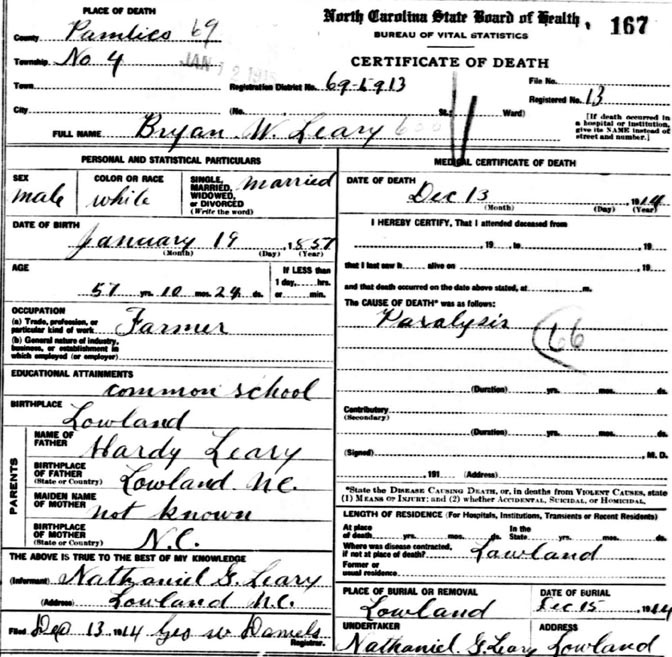 PLACE OF DEATH
North Carolina State Board of Health, 167
BUREAU OF VITAL STATISTICS
CERTIFICATE OF DEATH
County Pamlico 69
Township No 4
JAN 12 1915
Town
Registration District No. 69-5913
File No.
Registered No. 13
City (No. St. Ward)
[If death occurred in a hospital or institution, give its NAME instead of street and number.]
FULL NAME Bryan W. Leary
PERSONAL AND STATISTICAL PARTICULARS
SEX male
COLOR OR RACE white
SINGLE, MARRIED, WIDOWED, or DIVORCED (Write the word) married
DATE OF BIRTH
January 19, 1857
(Month) (Day) (Year)
AGE
57 yrs. 10 mos. 24 ds.
If LESS than 1 day, hrs. or min.
OCCUPATION
(a) Trade, profession, or particular kind of work Farmer
(b) General nature of industry, business, or establishment in which employed (or employer)
EDUCATIONAL ATTAINMENTS
common school
BIRTHPLACE
Lowland
PARENTS
NAME OF FATHER Hardy Leary
BIRTHPLACE OF FATHER (State or Country) Lowland N.C.
MAIDEN NAME OF MOTHER not known
BIRTHPLACE OF MOTHER (State or Country) N.C.
THE ABOVE IS TRUE TO THE BEST OF MY KNOWLEDGE
(Informant) Nathaniel G. Leary
(Address) Lowland N.C.
Filed Dec 13 1914 Geo W Daniels
Registrar.
MEDICAL CERTIFICATE OF DEATH
DATE OF DEATH
Dec 13, 1914
(Month) (Day) (Year)
I HEREBY CERTIFY, That I attended deceased from
, 19 , to , 19
that I last saw h alive on , 19
and that death occurred on the date above stated, at m.
The CAUSE OF DEATH* was as follows:
Paralysis 66
(Duration) yrs. mos. ds.
Contributory (Secondary)
(Duration) yrs. mos. ds.
(Signed) M. D.
191 (Address)
*State the DISEASE CAUSING DEATH, or, in deaths from VIOLENT CAUSES, state (1) MEANS OF INJURY; and (2) whether ACCIDENTAL, SUICIDAL, or HOMICIDAL.
LENGTH OF RESIDENCE (For Hospitals, Institutions, Transients or Recent Residents)
At place of death yrs. mos. ds. In the State yrs. mos. ds.
Where was disease contracted, if not at place of death? Lowland
Former or usual residence
PLACE OF BURIAL OR REMOVAL Lowland
DATE OF BURIAL Dec 15 1914
UNDERTAKER Nathaniel G. Leary
ADDRESS Lowland